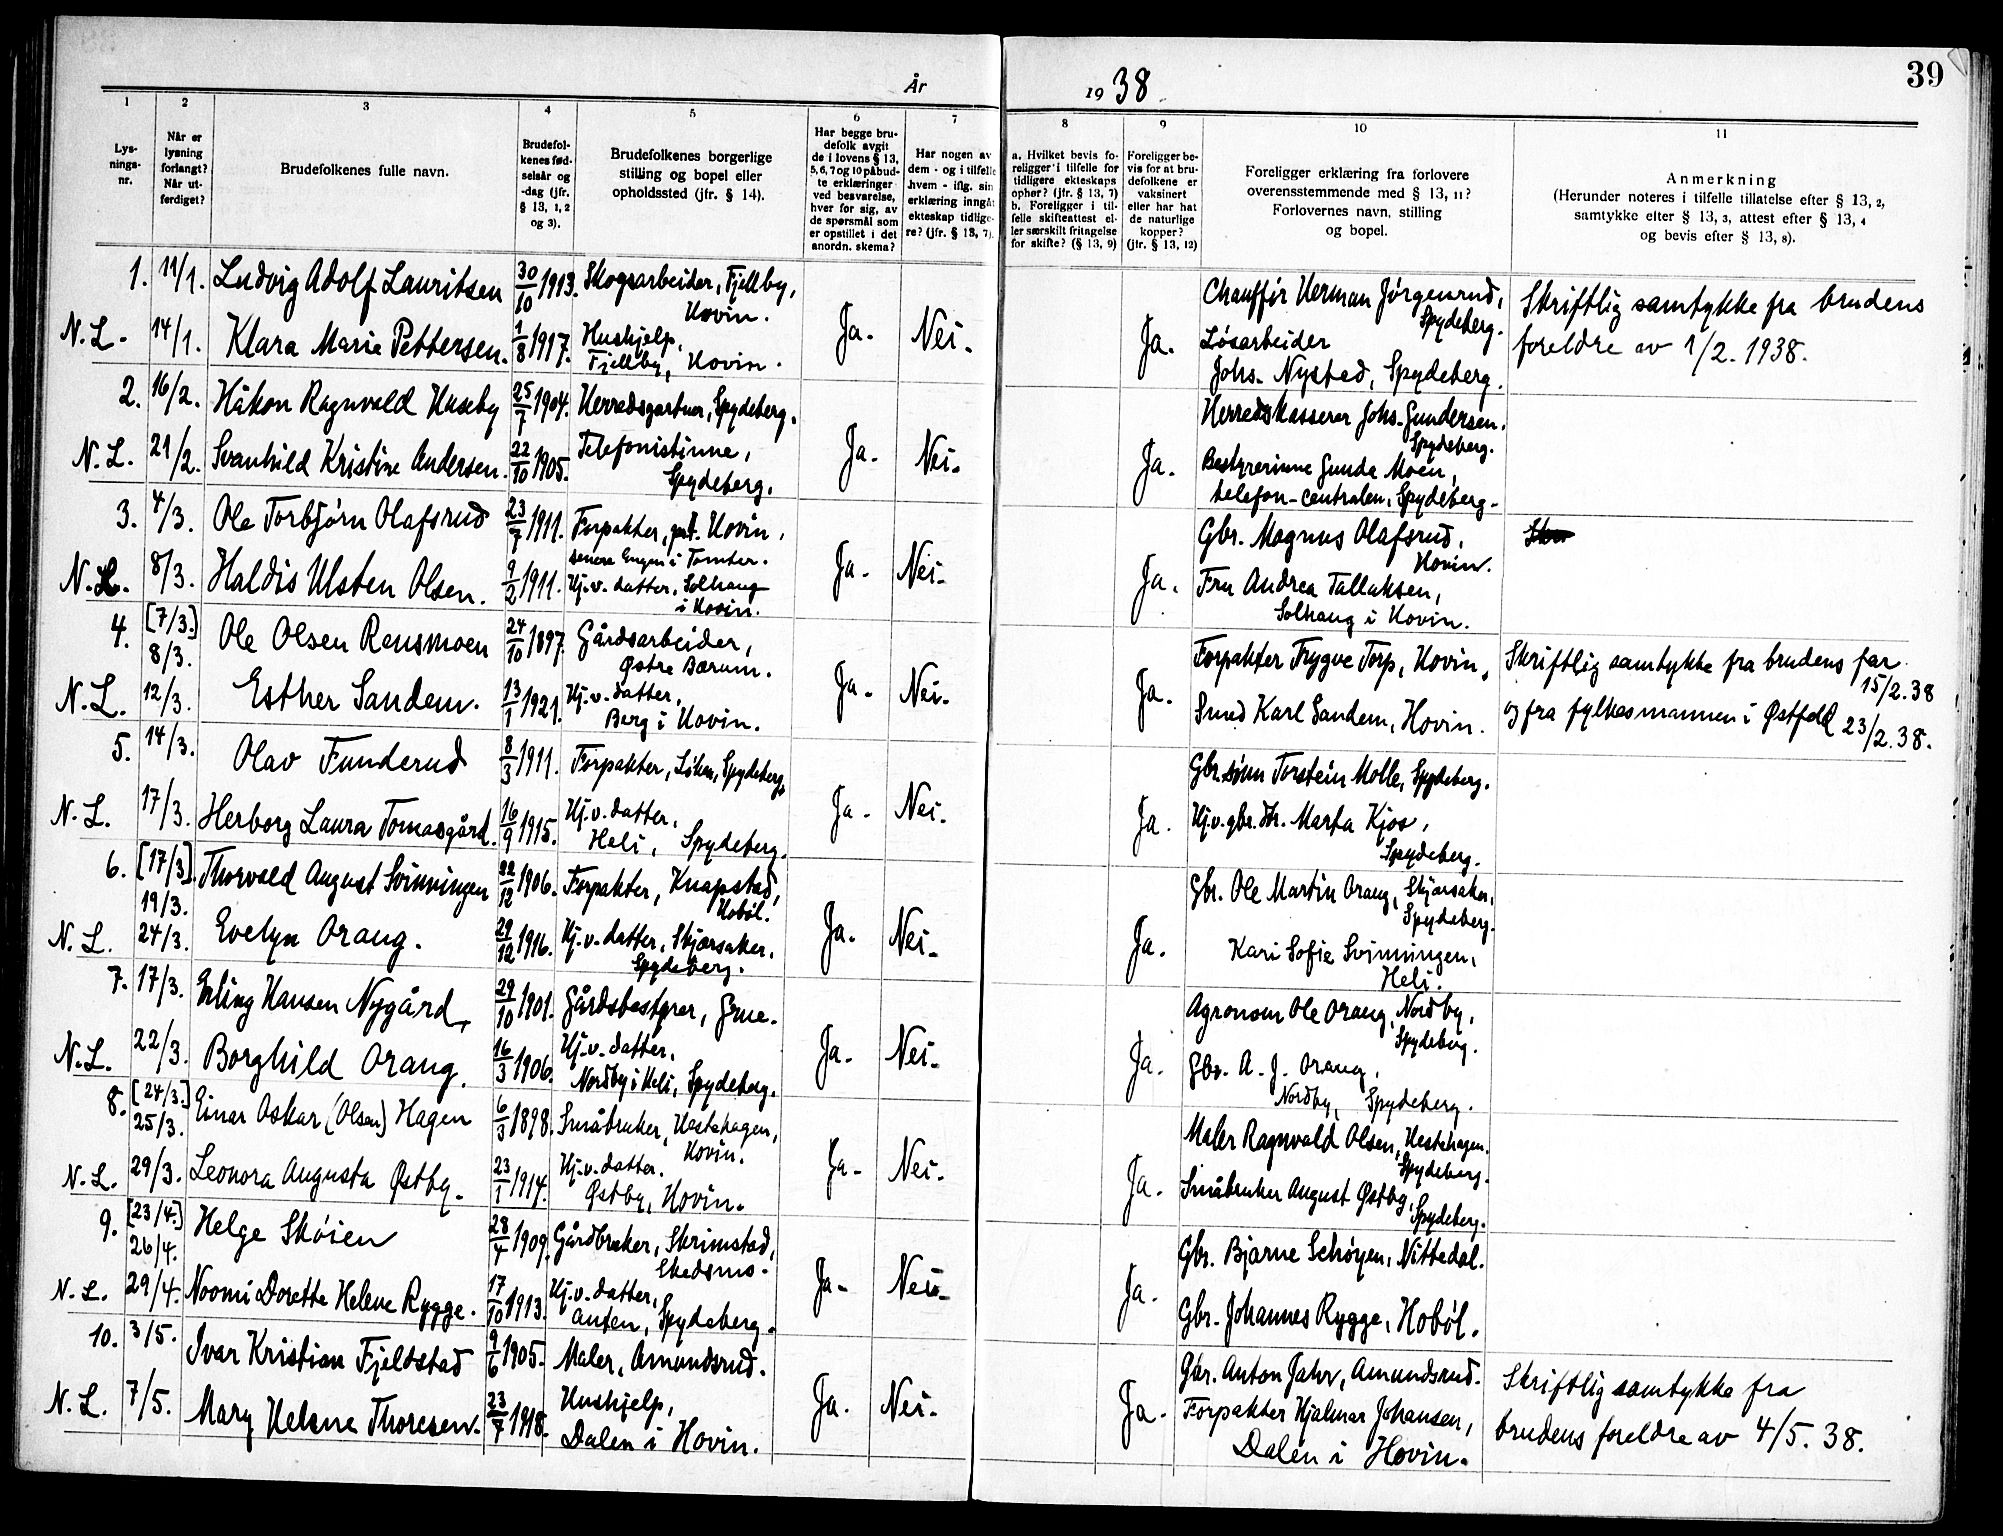 39
År 1938.
1 2 3 4 5 6 7 8 9 10 11
Lys-
nings-
nr.
Når er
lysning
forlangt?
Når ut-
ferdiget?
Brudefolkenes fulle navn.
Brudefol-
kenes fød-
selsår og
-dag (jfr.
§ 13, 1, 2
og 3).
Brudefolkenes borgerlige
stilling og bopel eller
opholdssted (jfr. § 14).
Har begge bru-
defolk avgit
de i lovens § 13,
5, 6, 7 og 10 påbud-
te erklæringer
ved besvarelse,
hver for sig, av
de spørsmål som
er opstillet i det
anordn. skema?
Har nogen av
dem - og i tilfelle
hvem - iflg. sin
erklæring inngåt
ekteskap tidlige-
re? (jfr. § 13, 7).
a. Hvilket bevis fo-
religger i tilfelle for
tidligere ekteskaps
ophør? (jfr. § 13, 7)
b. Foreligger i til-
felle skifteattest el-
ler særskilt fritagelse
for skifte? (§ 13, 9)
Foreligger be-
vis for at bru-
defolkene er
vaksinert
eller har hat
de naturlige
kopper?
(jfr. § 13, 12)
Foreligger erklæring fra forlovere
overensstemmende med § 13, 11?
Forlovernes navn, stilling
og bopel.
Anmerkning
(Herunder noteres i tilfelle tillatelse efter § 13, 2,
samtykke efter § 13, 3, attest efter § 13, 4
og bevis efter § 13, 8).
1. 11/1. Ludvig Adolf Lauritsen 30/10 1913. Skogsarbeider, Fjellby,
Hovin.
N. L. 14/1. Klara Marie Pettersen. 1/8 1917. Hushjelp,
Fjellby, Hovin.
Ja. Nei. Ja.
Chauffør Herman Jørgensrud,
Spydeberg.
Løsarbeider
Johs. Nystad, Spydeberg.
Skriftlig samtykke fra brudens
foreldre av 1/2. 1938.
2. 16/2. Håkon Ragnvald Huseby 25/7 1904. Herredsgartner, Spydeberg.
N. L. 21/2. Svanhild Kristine Andersen. 22/10 1905. Telefonistinne,
Spydeberg.
Ja. Nei. Ja.
Herredskasserer Johs. Gundersen.
Spydeberg.
Bestyrerinne Gunda Moen,
telefon-centralen, Spydeberg.
3. 4/3. Ole Torbjørn Olafsrud 23/7 1911. Forpakter, pt. Hovin,
senere Engen i Tomter.
N. L. 8/3. Haldis Ulsten Olsen. 9/2 1911. Hj.v. datter, Solhaug
i Hovin.
Ja. Nei. Ja.
Gbr. Magnus Olafsrud,
Hovin.
Fru Andrea Tallaksen,
Solhaug i Hovin.
4. [7/3.] 8/3. Ole Olsen Rensmoen 24/10 1897. Gårdsarbeider,
Østre Bærum.
N. L. 12/3. Esther Sandem. 13/1 1921. Hj.v. datter,
Berg i Hovin.
Ja. Nei. Ja.
Forpakter Trygve Torp, Hovin.
Smed Karl Sandem, Hovin.
Skriftlig samtykke fra brudens far
15/2. 38
og fra fylkesmannen i Østfold 23/2. 38.
5. 14/3. Olav Funderud 8/3 1911. Forpakter, Løken, Spydeberg.
N. L. 17/3. Herborg Laura Tomasgård. 16/9 1915. Hj.v. datter,
Heli, Spydeberg.
Ja. Nei. Ja.
Gbr.sønn Torstein Molle, Spydeberg.
Hj.v. gbr. dtr. Marta Kjos,
Spydeberg.
6. [17/3]. 19/3. Thorvald August Svinningen 22/12 1906. Forpakter, Knapstad,
Hobøl.
N. L. 24/3. Evelyn Oraug. 29/12 1916. Hj.v. datter, Skjørsaker.
Spydeberg.
Ja. Nei. Ja.
Gbr. Ole Martin Oraug, Skjørsaker,
Spydeberg.
Kari Sofie Svinningen,
Heli.
7. 17/3. Erling Hansen Nygård, 29/10 1901. Gårdsbestyrer, Grue.
N. L. 22/3. Borghild Oraug. 16/3 1906. Hj.v. datter.
Nordby i Heli, Spydeberg.
Ja. Nei. Ja.
Agronom Ole Oraug, Nordby,
Spydeberg.
Gbr. A. J. Oraug,
Nordby, Spydeberg.
8. [24/3.] 25/3. Einar Oskar (Olsen) Hagen 6/3 1898. Småbruker, Hestehagen,
Hovin.
N. L. 29/3. Leonora Augusta Østby. 23/1 1914. Hj.v. datter.
Østby, Hovin.
Ja. Nei. Ja.
Maler Ragnvald Olsen, Hestehagen.
Spydeberg.
Småbruker August Østby,
Spydeberg.
9. [23/4.] 26/4. Helge Skøien 28/4 1909. Gårdbruker, Skrimstad,
Skedsmo.
N. L. 29/4. Noomi Dorette Helene Rygge. 17/10 1913. Hj.v. datter,
Auten, Spydeberg.
Ja. Nei. Ja.
Gbr. Bjarne Schøyen, Nittedal.
Gbr. Johannes Rygge, Hobøl.
10. 3/5. Ivar Kristian Fjeldstad 9/6 1905. Maler, Amundsrud.
N. L. 7/5. Mary Helene Thoresen. 23/7 1918. Hushjelp,
Dalen i Hovin.
Ja. Nei. Ja.
Gbr. Anton Jahr, Amundsrud.
Forpakter Hjalmar Johansen,
Dalen i Hovin.
Skriftlig samtykke fra
brudens foreldre av 4/5. 38.